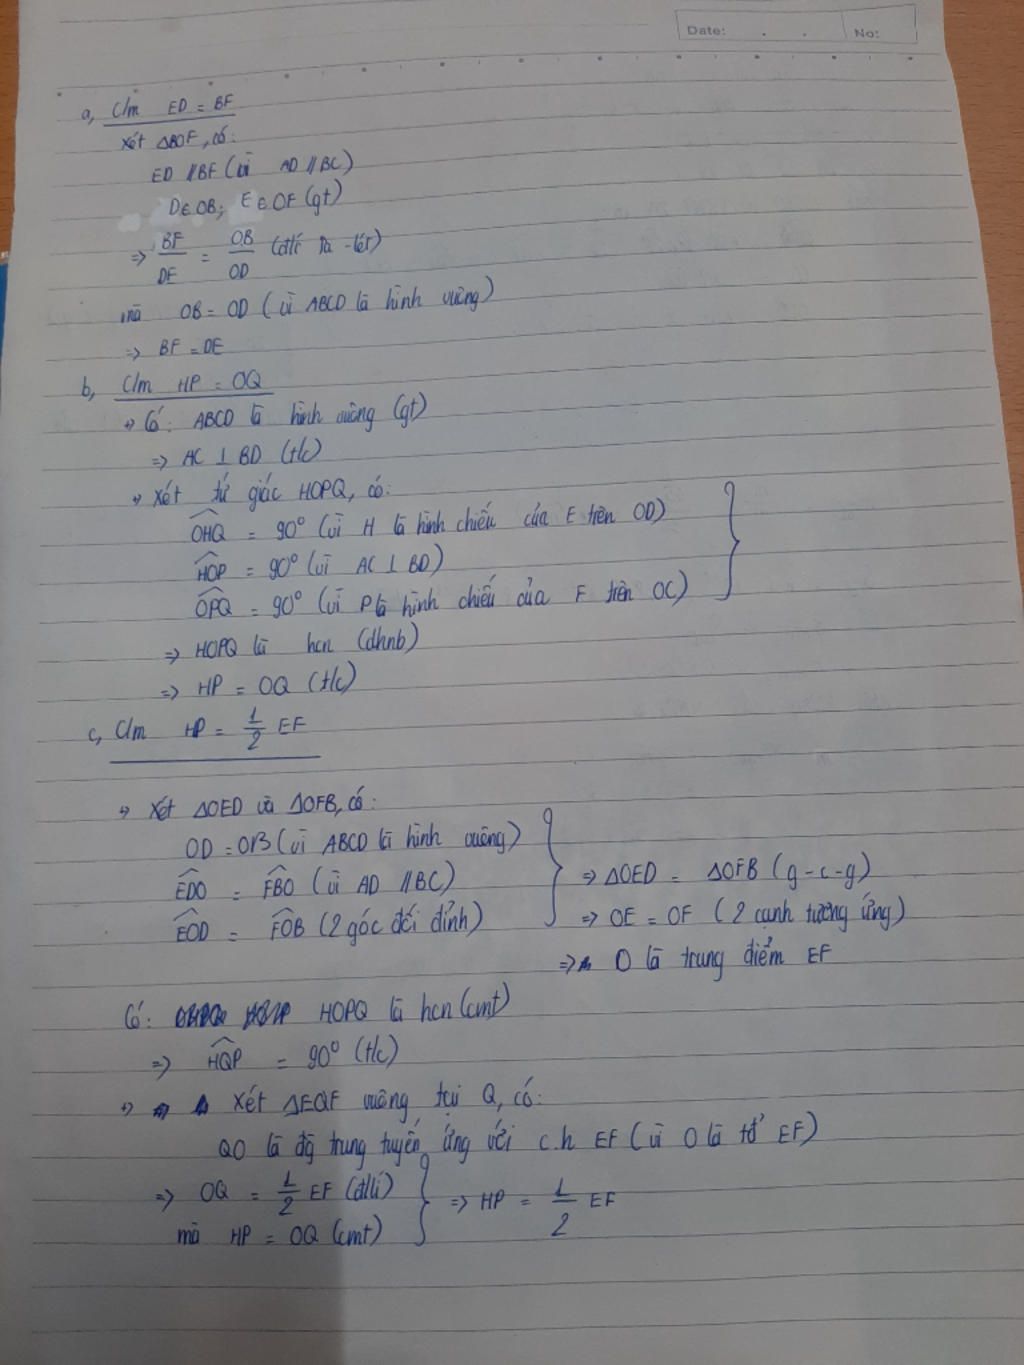 Date: . . No:
a, C/m ED = BF
Xét ΔBOF, có:
ED // BF (vì AD // BC)
D∈OB; E∈OF (gt)
=> BF/DE = OB/OD (đlí Ta-lét)
mà OB = OD (vì ABCD là hình vuông)
=> BF = DE
b, C/m HP = OQ
+) Có: ABCD là hình vuông (gt)
=> AC ⊥ BD (t/c)
+) Xét tứ giác HOPQ, có:
OHQ = 90° (vì H là hình chiếu của E trên OD)
HOP = 90° (vì AC ⊥ BD)
OPQ = 90° (vì P là hình chiếu của F trên OC)
=> HOPQ là hcn (dhnb)
=> HP = OQ (t/c)
c, C/m HP = 1/2 EF
+) Xét ΔOED và ΔOFB, có:
OD = OB (vì ABCD là hình vuông)
EDO = FBO (vì AD // BC)
EOD = FOB (2 góc đối đỉnh)
=> ΔOED = ΔOFB (g-c-g)
=> OE = OF (2 cạnh tương ứng)
=> O là trung điểm EF
Có: HOPQ là hcn (cmt)
=> HQP = 90° (t/c)
+) Xét ΔEQF vuông tại Q, có:
QO là độ trung tuyến ứng với c.h EF (vì O là tđ' EF)
=> OQ = 1/2 EF (đlí)
mà HP = OQ (cmt)
=> HP = 1/2 EF